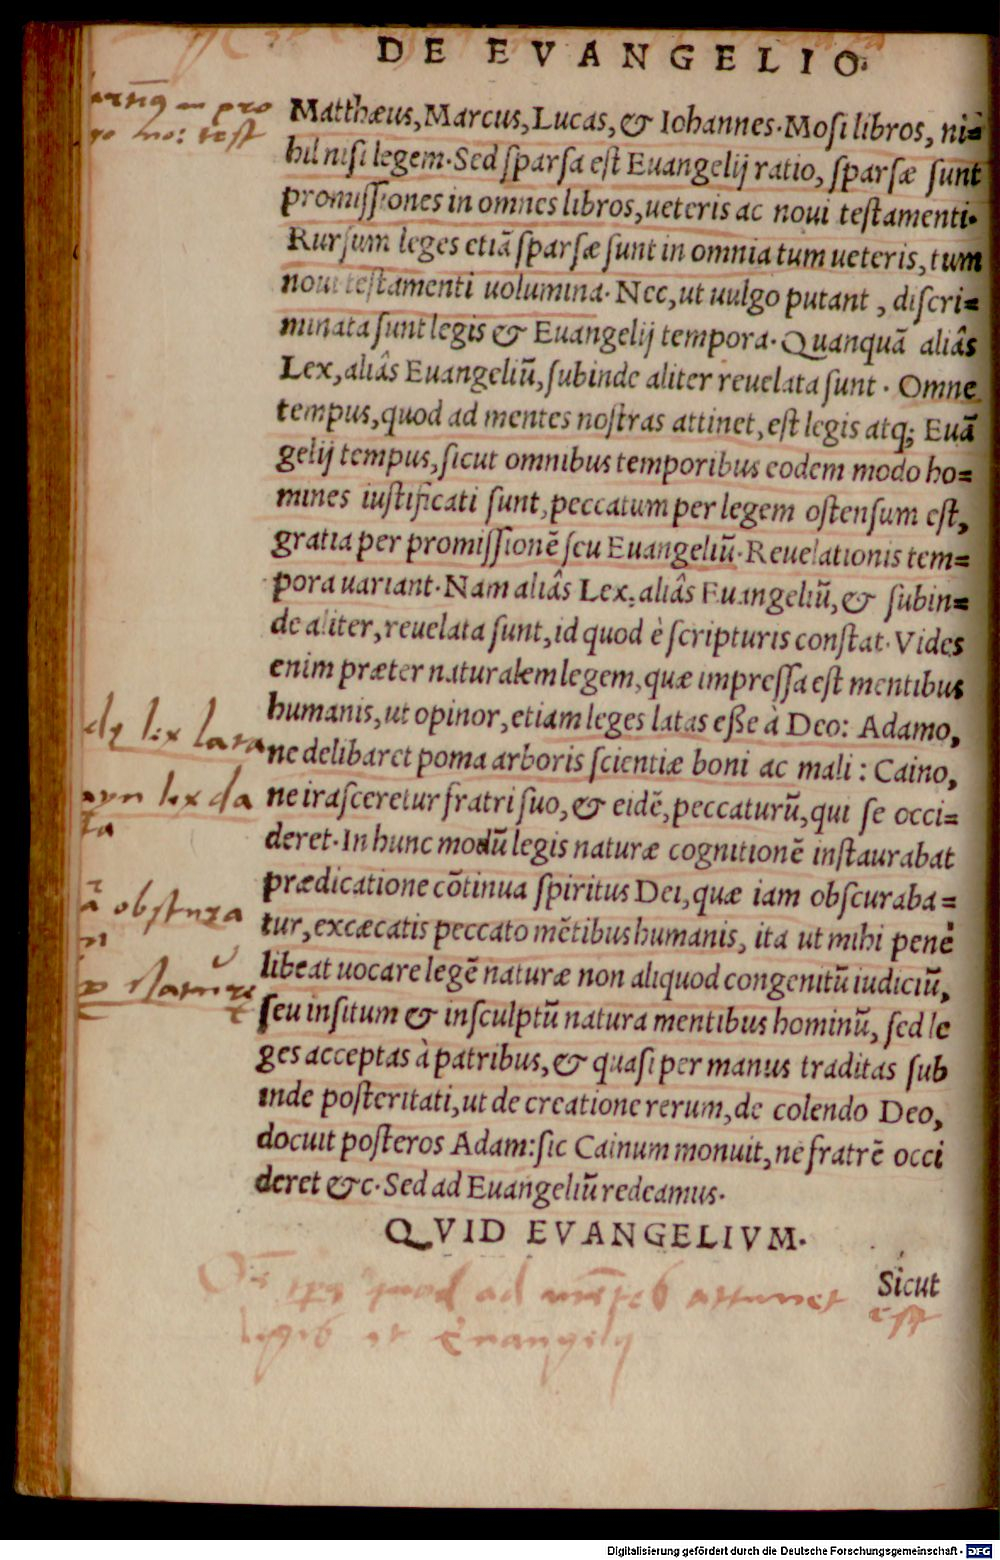 DE EVANGELIO.
Matthæus, Marcus, Lucas, & Iohannes. Mosi libros, ni=
hil nisi legem. Sed sparsa est Euangelij ratio, sparsæ sunt
promissiones in omnes libros, ueteris ac noui testamenti.
Rursum leges etiā sparsæ sunt in omnia tum ueteris, tum
noui testamenti uolumina. Nec, ut uulgo putant, discri=
minata sunt legis & Euangelij tempora. Quanquā aliâs
Lex, aliâs Euangeliū, subinde aliter reuelata sunt. Omne
tempus, quod ad mentes nostras attinet, est legis atq; Euā
gelij tempus, sicut omnibus temporibus eodem modo ho=
mines iustificati sunt, peccatum per legem ostensum est,
gratia per promissionē seu Euangeliū. Reuelationis tem=
pora uariant. Nam aliâs Lex, aliâs Euangeliū, & subin=
de aliter, reuelata sunt, id quod è scripturis constat. Vides
enim præter naturalem legem, quæ impressa est mentibus
humanis, ut opinor, etiam leges latas eße à Deo: Adamo,
de lex lata
ne delibaret poma arboris scientiæ boni ac mali: Caino,
ne irasceretur fratri suo, & eidē, peccaturū, qui se occi=
lex da
ta
deret. In hunc modū legis naturæ cognitionē instaurabat
prædicatione cōtinua spiritus Dei, quæ iam obscuraba=
tur, excæcatis peccato mētibus humanis, ita ut mihi penè
libeat uocare legē naturæ non aliquod congenitū iudiciū,
seu insitum & insculptū natura mentibus hominū, sed le
ges acceptas à patribus, & quasi per manus traditas sub
inde posteritati, ut de creatione rerum, de colendo Deo,
docuit posteros Adam: sic Cainum monuit, ne fratrē occi
deret &c. Sed ad Euangeliū redeamus.
QVID EVANGELIVM.
Sicut
quod ad mētes attinet est
legis et Euangelij
Digitalisierung gefördert durch die Deutsche Forschungsgemeinschaft - DFG